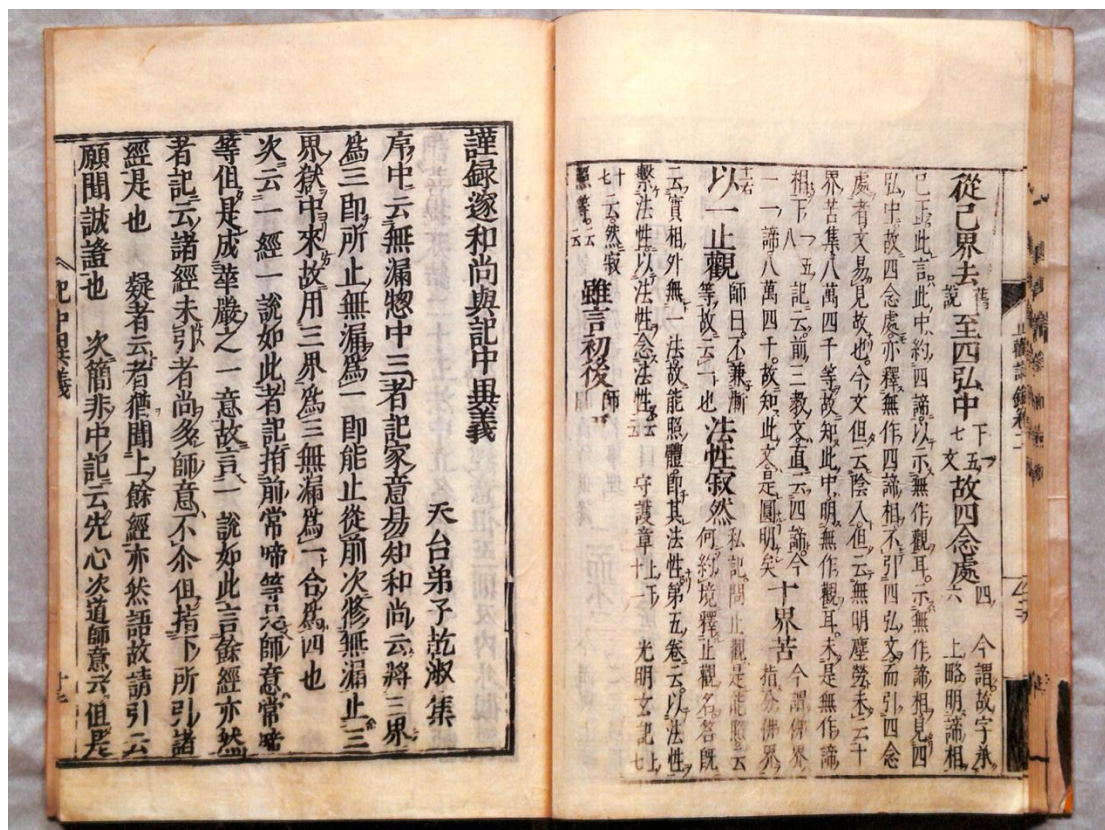 從已界去 舊說 至四弘中 下五七文 故四念處 四六 今謂故字承上略明諦相
已上此言此中約四諦以示無作觀耳示無作諦相見四
弘中故四念處亦釋無作四諦相不引四弘文而引四念
處者文易見故也今文但云陰入但云無明塵勞未云十
界苦集八萬四千等故知此中明無作觀耳未是無作諦
相下五八 記云前三教文直云四諦今
一一諦八萬四千故知此文是圓明矣 十界苦 今謂佛界相下指分佛界
以一止觀 師曰不兼漸等故云一也 法性寂然 私記問止觀是能照云何約境釋止觀名答既
云實相外無一法故能照體即其法性第五卷云以法性
繫法性以法性念法性 守護章上下十一 光明玄記上七
十七云然寂照等云云 雖言初後 師
止觀
謹録邃和尚與記中異義
天台弟子乾淑集
序中云無漏惣中三者記家意易知和尚云將三界
爲三即所止無漏爲一即能止從前次修無漏止三
界獄中來故用三界爲三無漏爲一合爲四也
次云一經一說如此者記指前常啼等意師意常啼
等但是成華嚴之一意故言一說如此言餘經亦然
者記云諸經未引者尚多師意不尒但指下所引諸
經是也 疑者云者猶聞上餘經亦然語故請引云
願聞誠證也 次簡非中記云先心次道師意云但是
記中異義